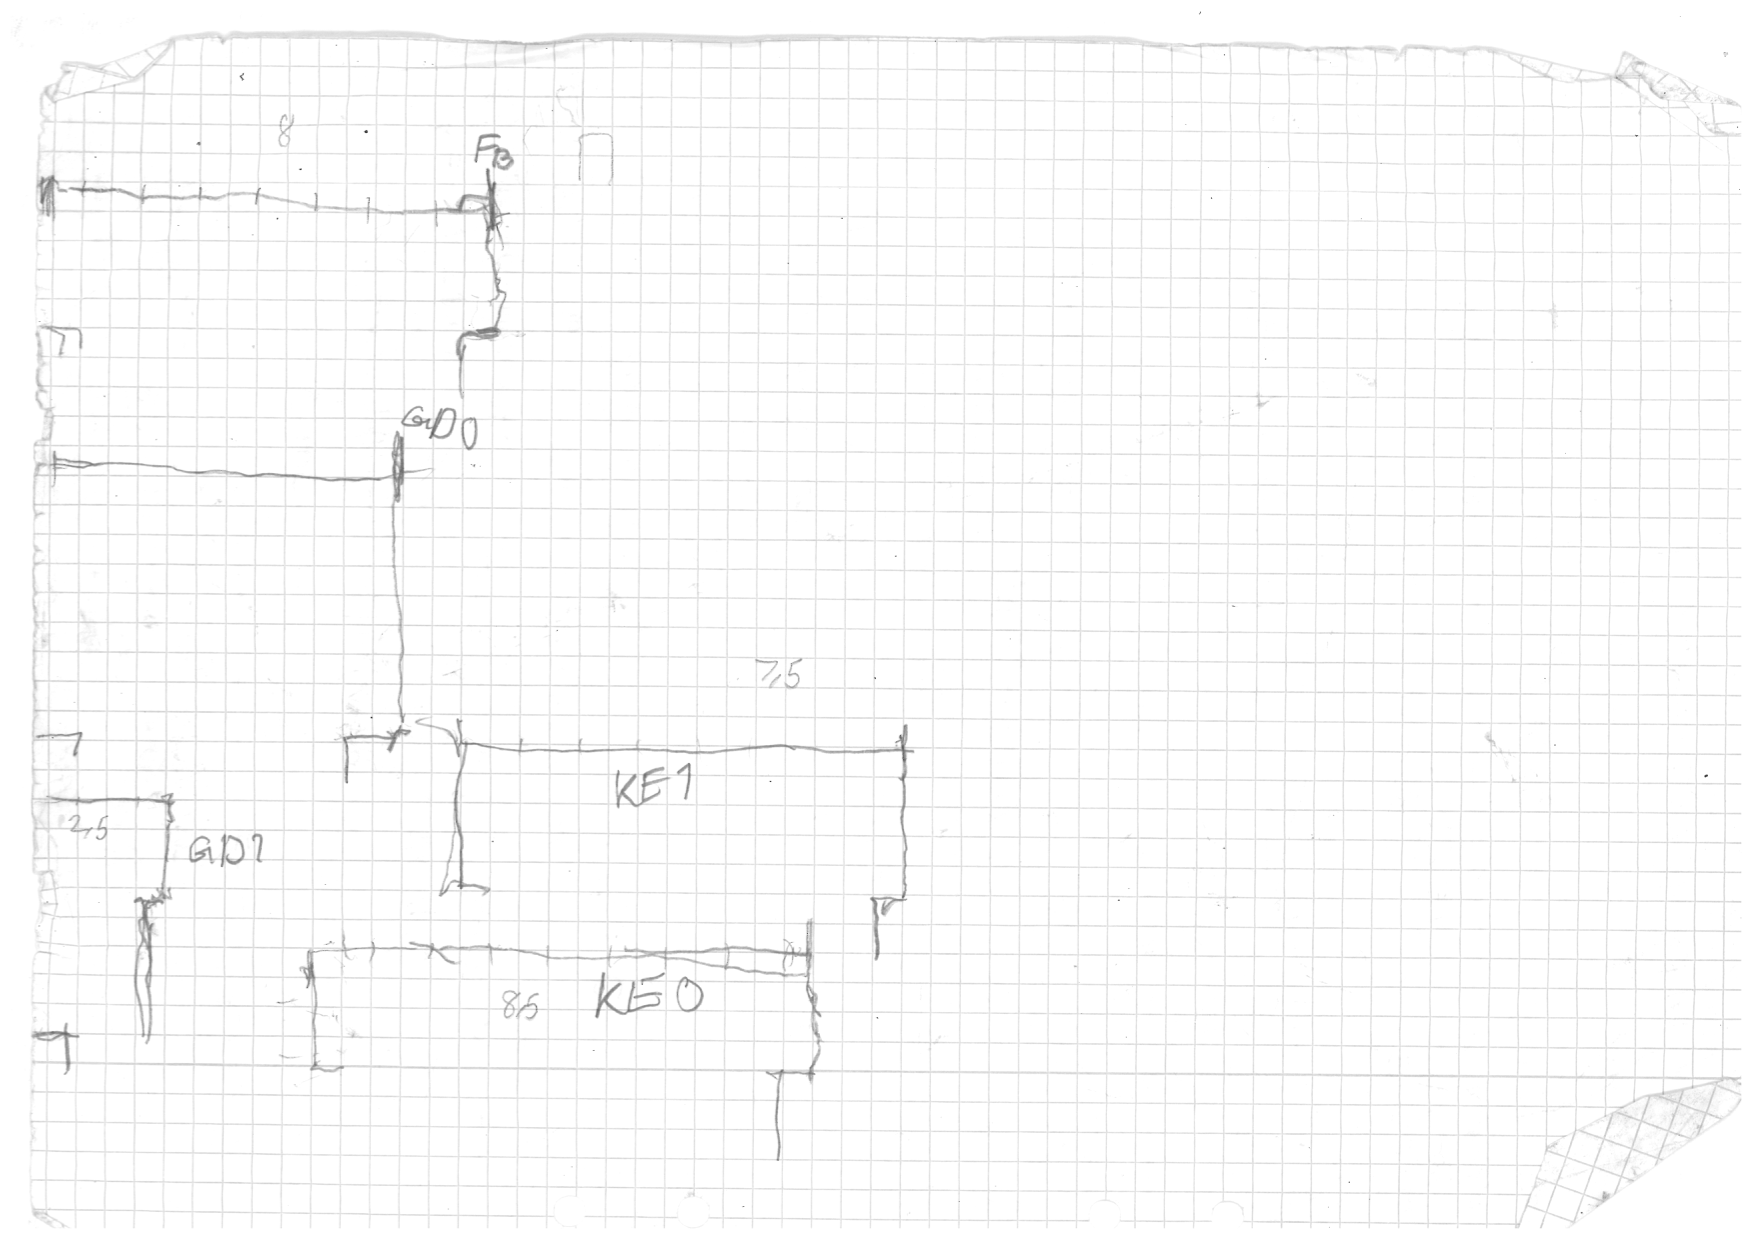 8
FB
GD0
7,5
KE1
2,5
GD1
8,5
KE0